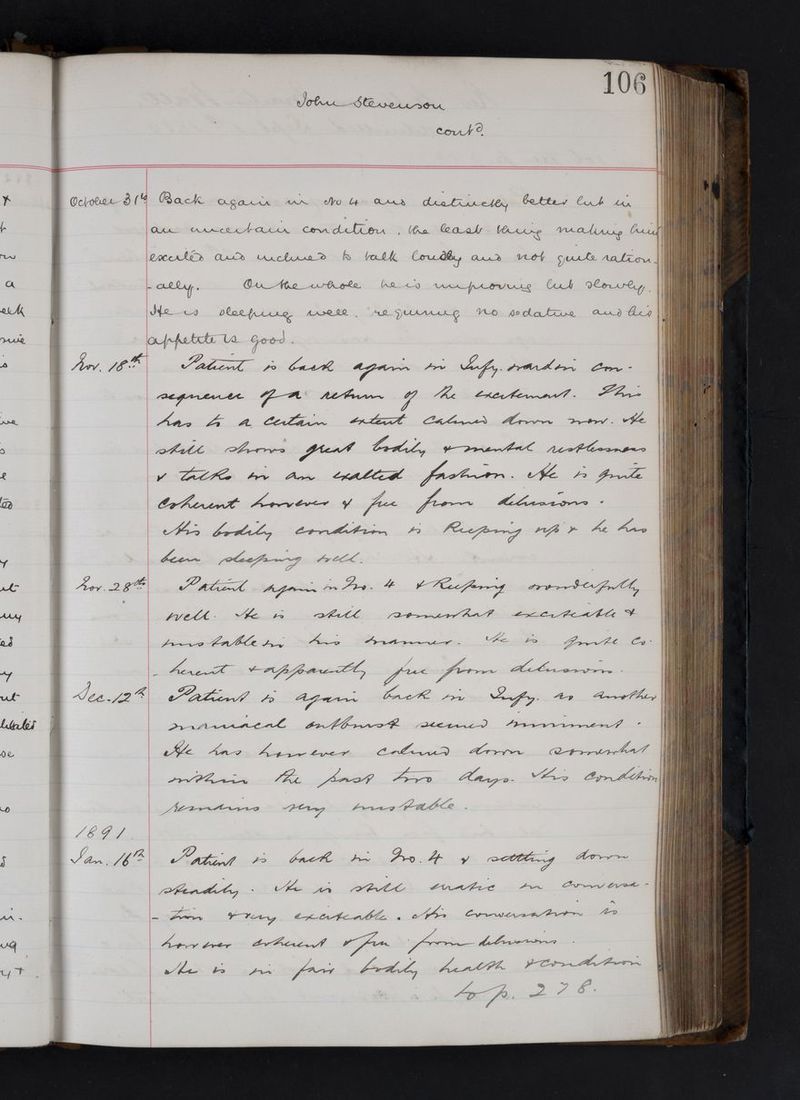 106
John Stevenson
contd.
October 31st Back again in No 4 and distinctly better but in
an uncertain condition, the least thing making him
excited and inclined to talk loudly and not quite ration-
-ally. On the whole he is improving but slowly.
He is sleeping well, requiring no sedative and his
appetite is good.
Nov. 18th Patient is back again in Infy. ward in con-
sequence of a return of the excitement. This
has to a certain extent calmed down now. He
still shows great bodily & mental restlessness
& talks in an exalted fashion. He is quite
coherent however & free from delusions.
His bodily condition is keeping up & he has
been sleeping well.
Nov. 28th Patient again in No. 4 & keeping wonderfully
well. He is still somewhat exciteable &
unstable in his manner. He is quite co-
-herent & apparently free from delusions.
Dec. 12th Patient is again back in Infy. as another
maniacal outburst seemed imminent.
He has however calmed down somewhat
within the past two days. His condition
remains very unstable.
1891
Jan. 16th Patient is back in No. 4 & settling down
steadily. He is still erratic in conversa-
-tion & very exciteable. His conversation is
however coherent & free from delusions.
He is in fair bodily health & condition
to p. 278.